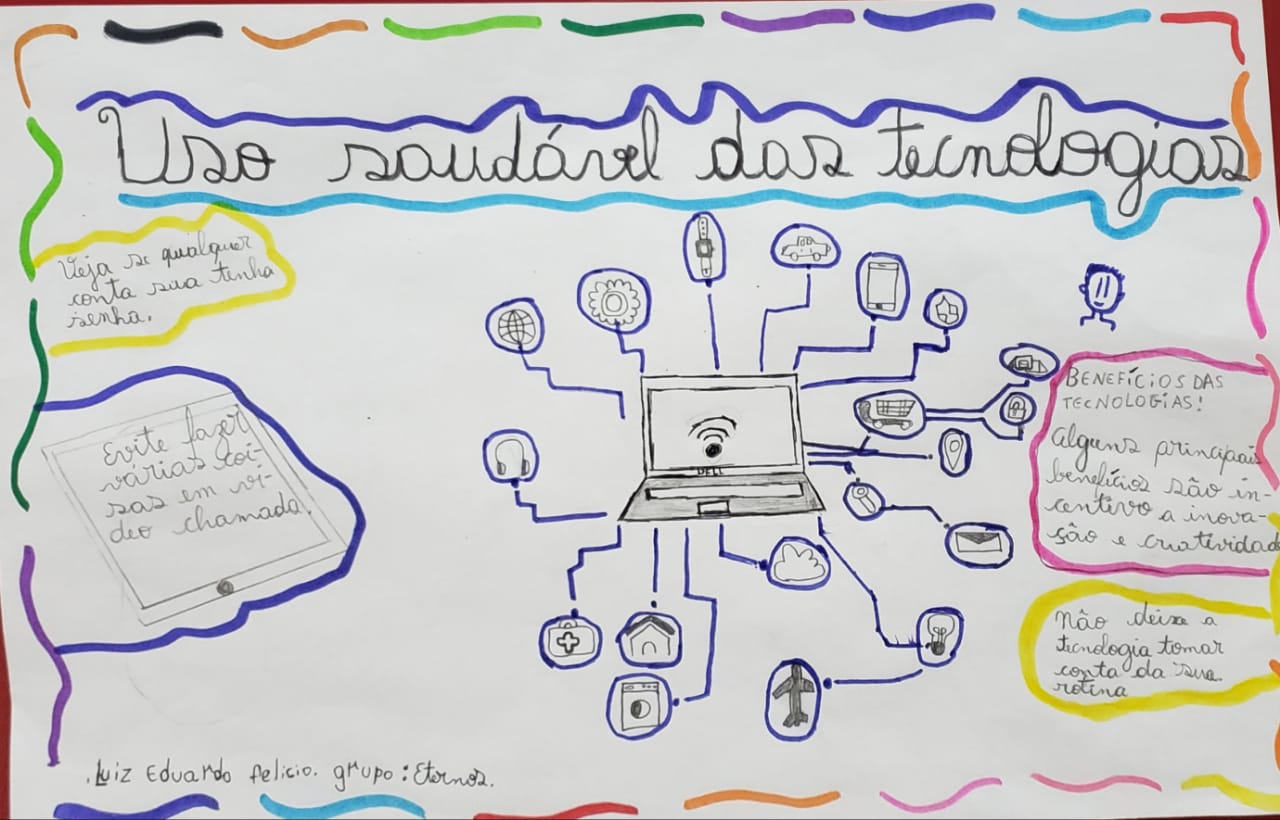 Uso saudável das tecnologias
Veja se qualquer
conta sua tenha
senha.
Evite fazer
várias coi-
sas em ví-
deo chamada.
DELL
BENEFÍCIOS DAS
TECNOLOGIAS!
Alguns principais
benefícios são in-
centivo a inova-
ção e criatividade
não deixe a
tecnologia tomar
conta da sua
rotina
Luiz Eduardo felicio. grupo: Eternos.